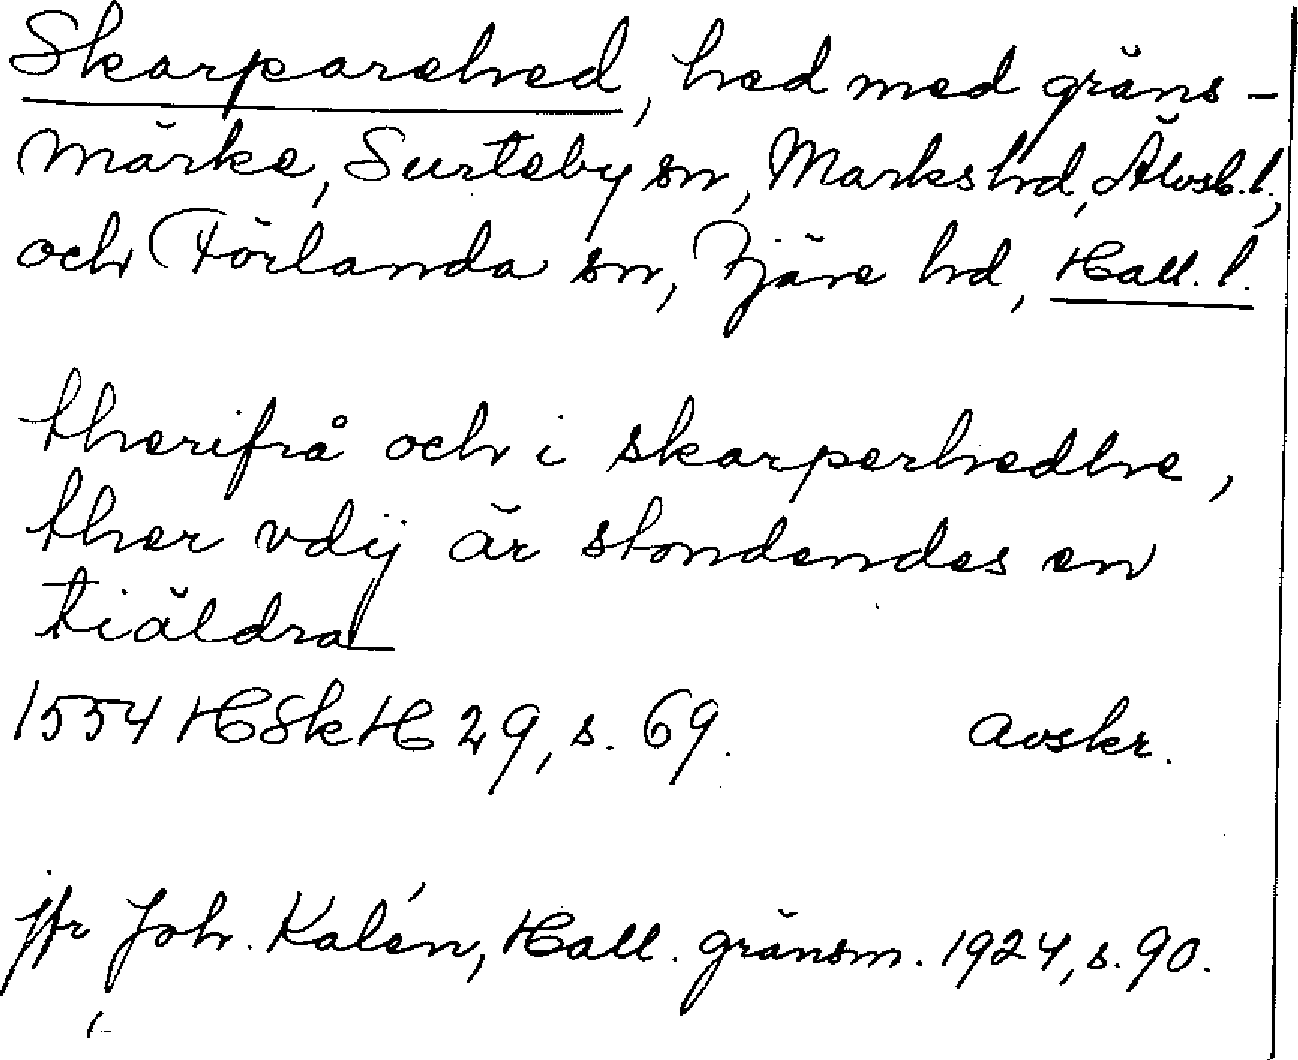 Skarparehed, hed med gräns-
märke, Surteby sn, Marks hd, Älvsb. l.,
och Förlanda sn, Fjäre hd, Hall. l.
therifrå och i skarperhedhe,
ther vdij är stondendes en
tiäldra
1554 HSkH 29, s. 69. Avskr.
jfr Joh. Kalén, Hall. gränsm. 1924, s. 90.